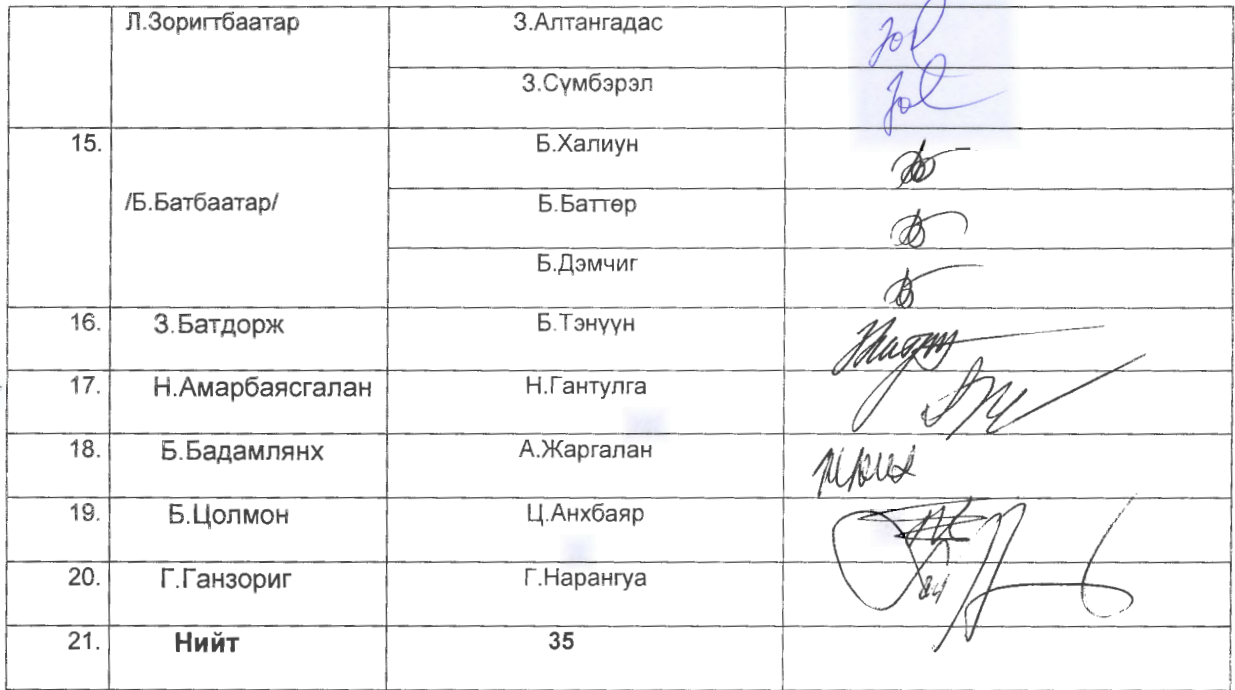 Л.Зоригтбаатар З.Алтангадас
З.Сүмбэрэл
15. Б.Халиун
/Б.Батбаатар/ Б.Баттөр
Б.Дэмчиг
16. З.Батдорж Б.Тэнүүн
17. Н.Амарбаясгалан Н.Гантулга
18. Б.Бадамлянх А.Жаргалан
19. Б.Цолмон Ц.Анхбаяр
20. Г.Ганзориг Г.Нарангуа
21. Нийт 35